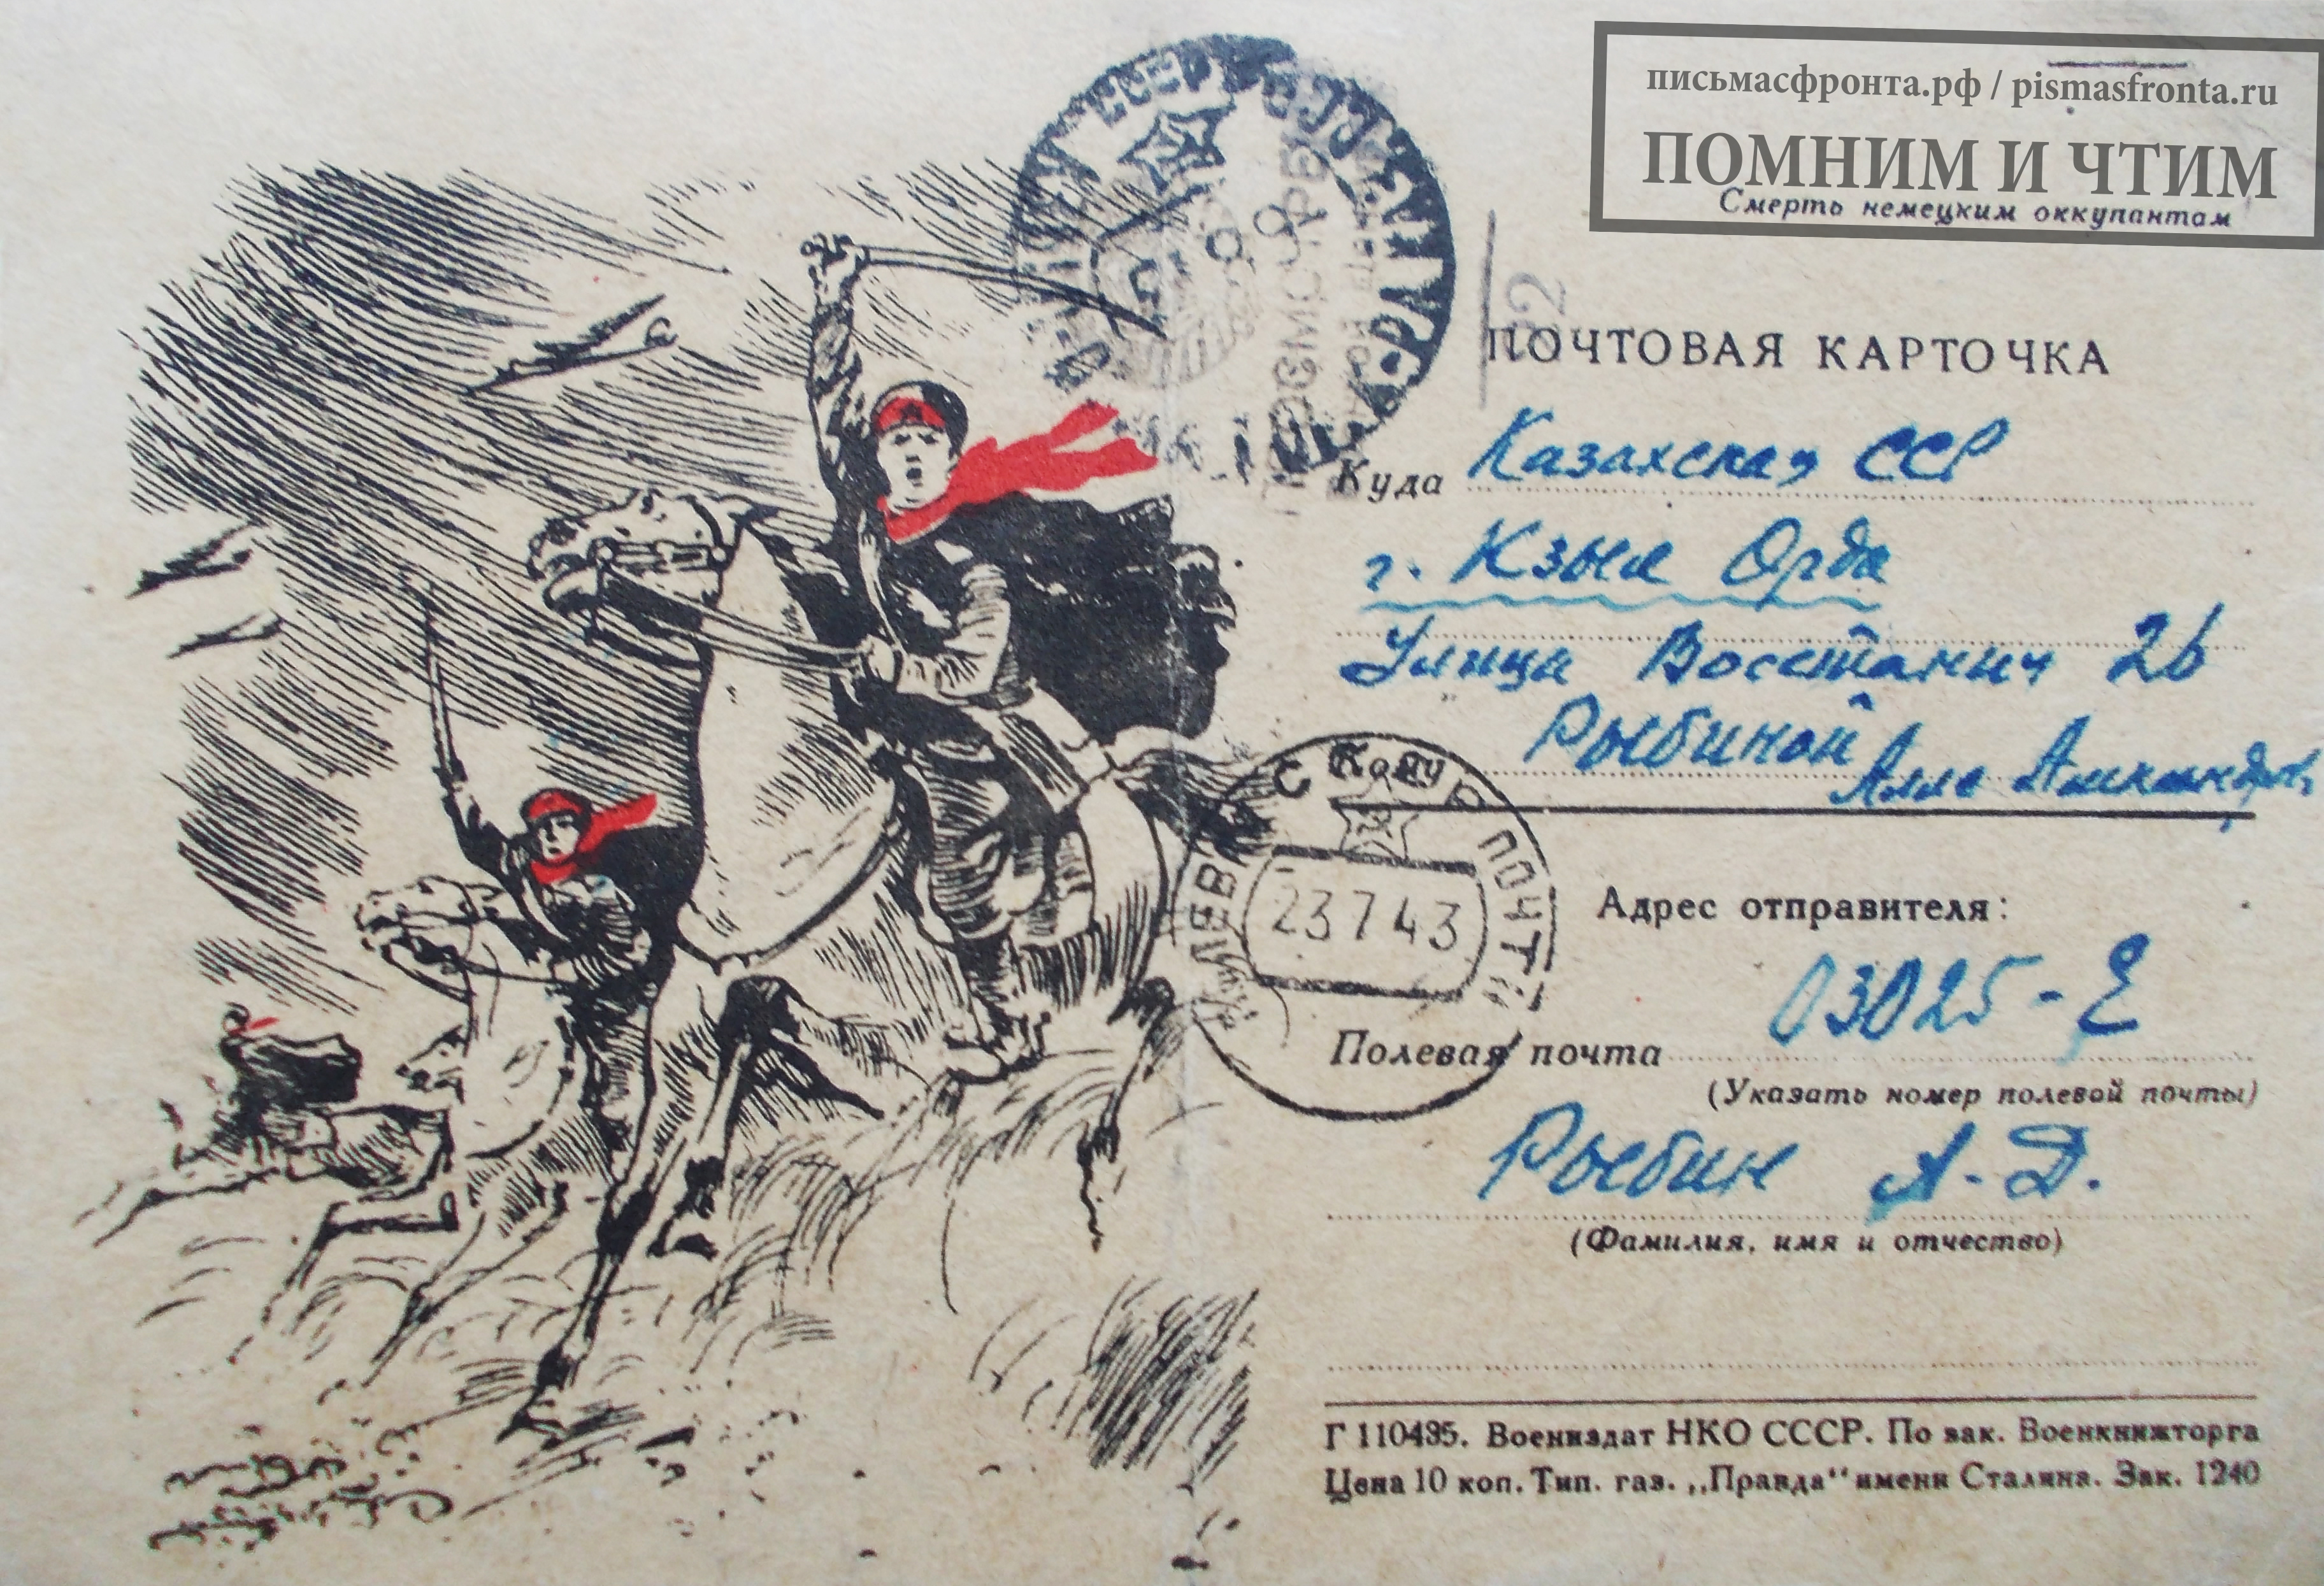 письмасфронта.рф / pismasfronta.ru
ПОМНИМ И ЧТИМ
Смерть немецким оккупантам
ПОЧТОВАЯ КАРТОЧКА
Куда Казахская ССР
г. Кзыл Орда
Улица Восстания 26
Кому Рыбиной Алле
23 7 43
Адрес отправителя:
03025-Е
Полевая почта
(Указать номер полевой почты)
Рыбин А. Д.
(Фамилия, имя и отчество)
Г 110435. Воениздат НКО СССР. По зак. Военкнижторга
Цена 10 коп. Тип. газ. „Правда“ имени Сталина. Зак. 1240